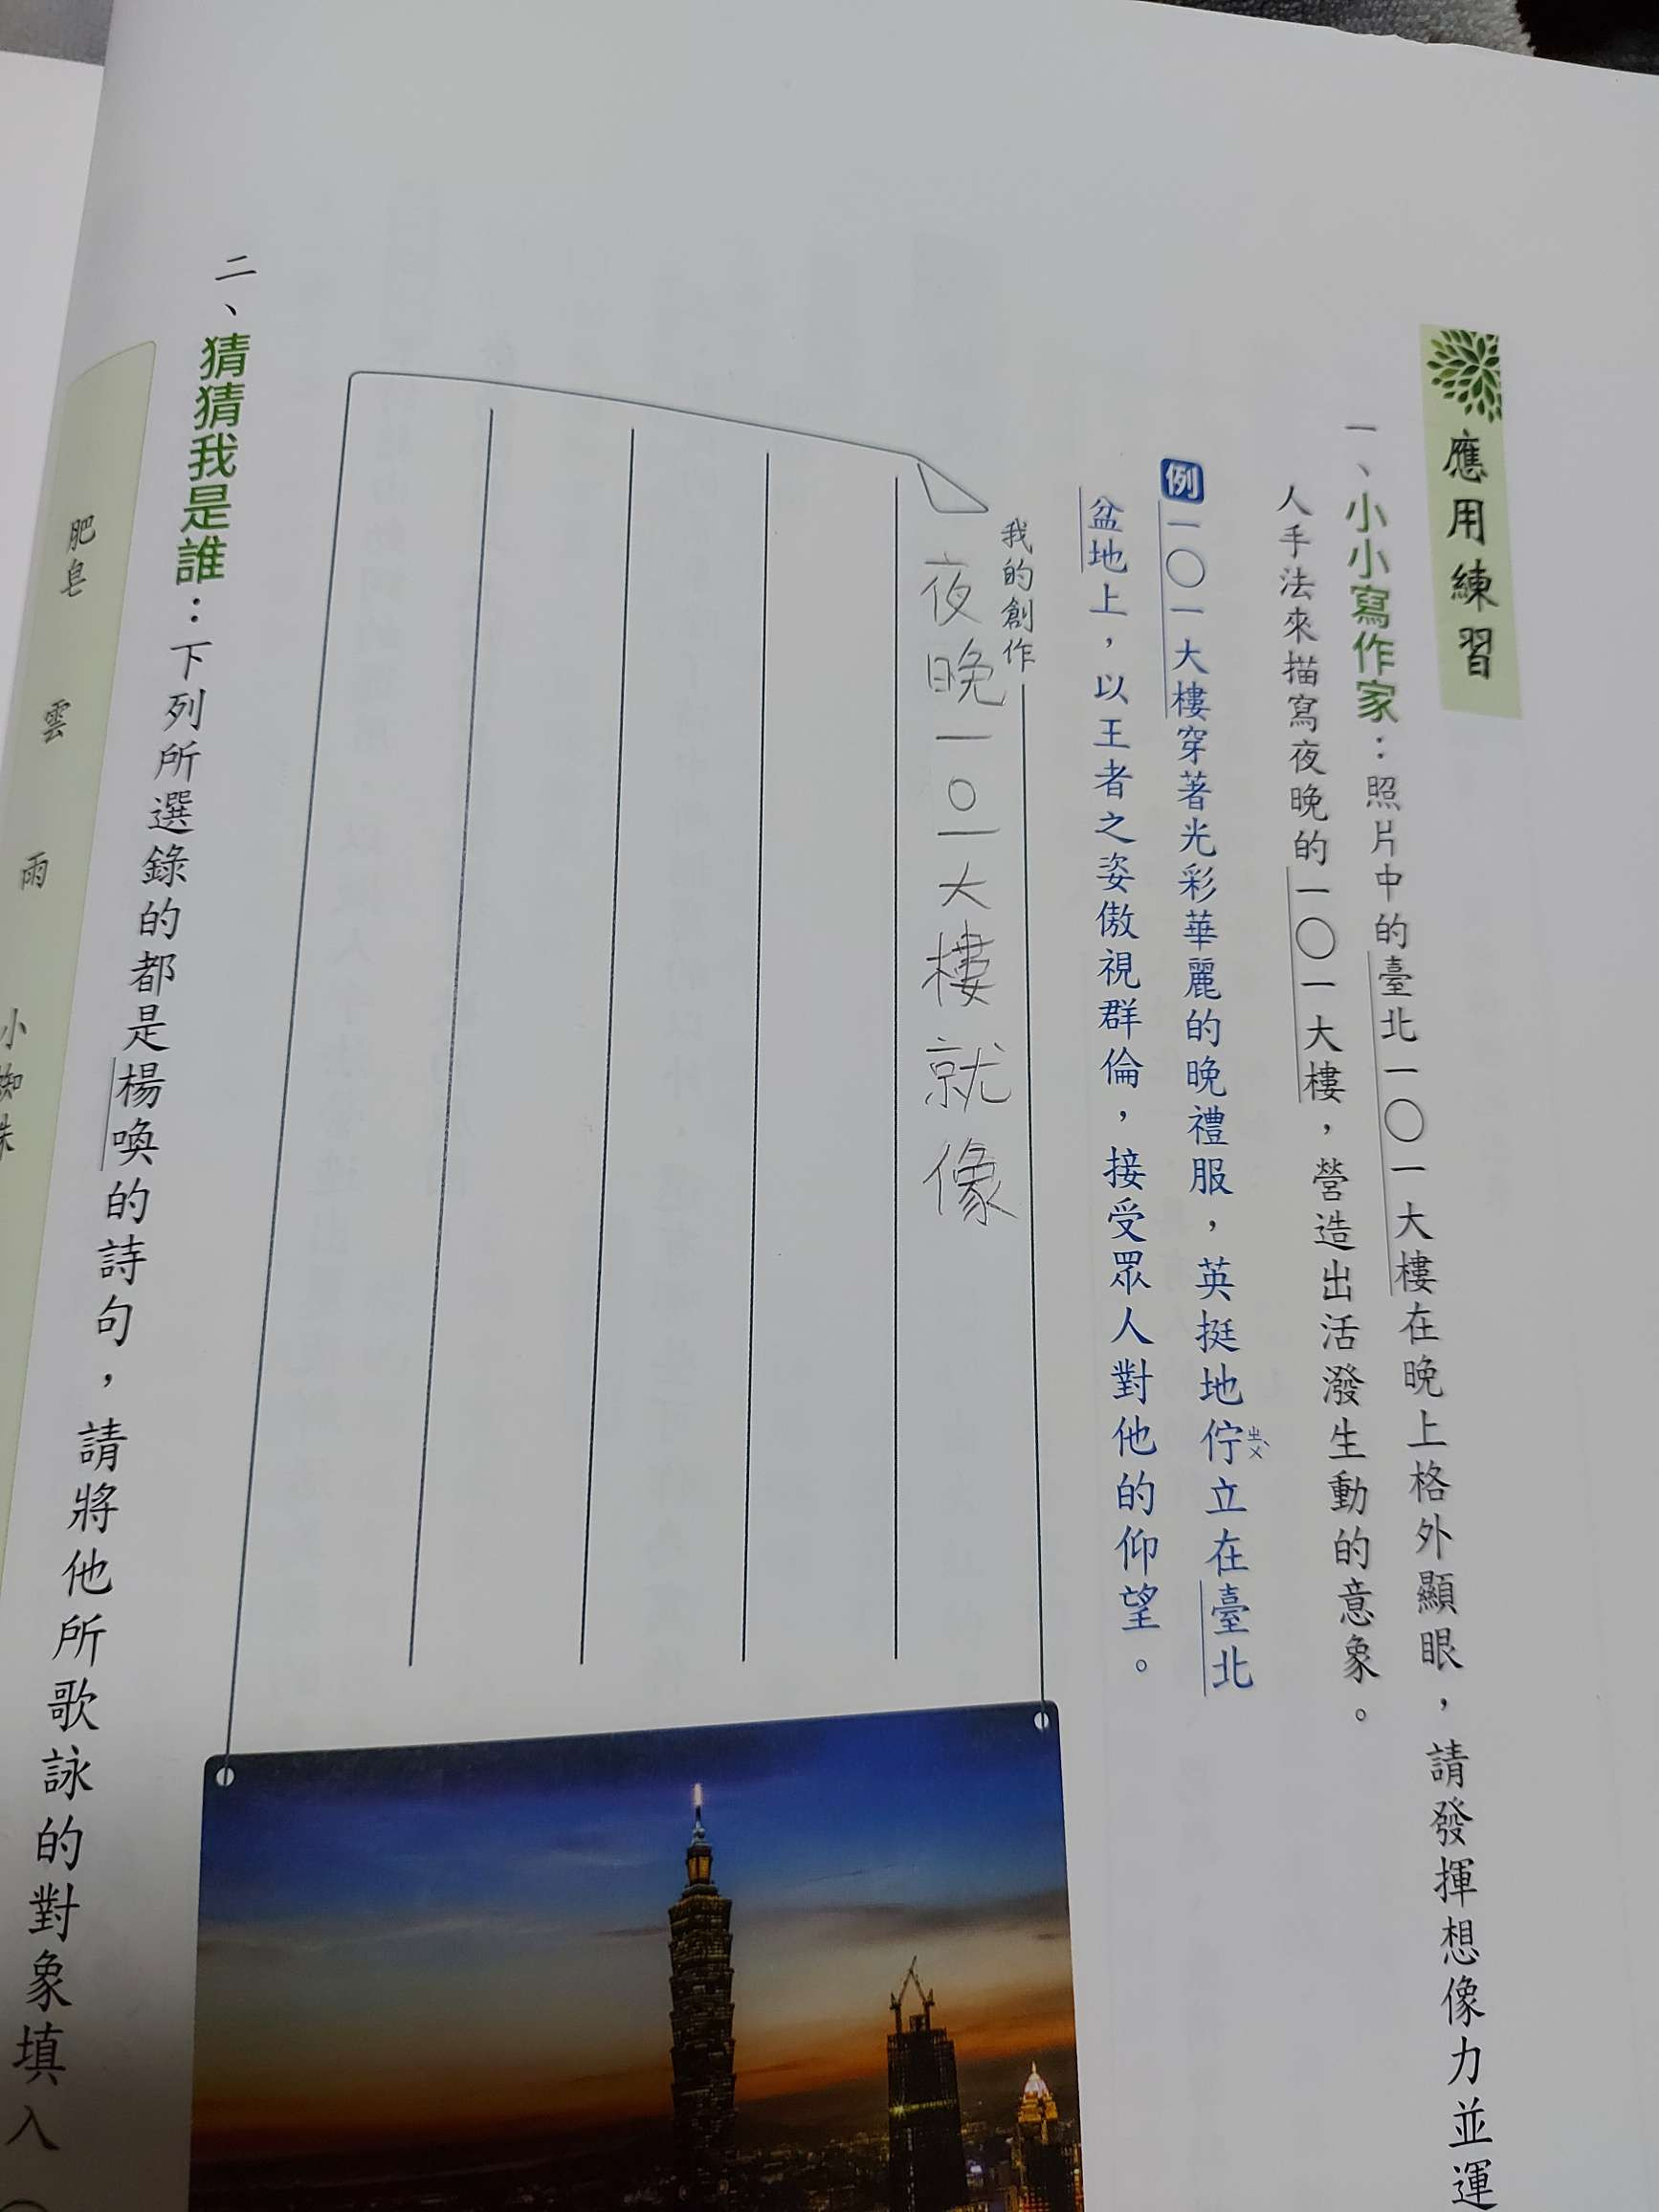 應用練習
一、小小寫作家：照片中的臺北一〇一大樓在晚上格外顯眼，請發揮想像力並運
人手法來描寫夜晚的一〇一大樓，營造出活潑生動的意象。
例一〇一大樓穿著光彩華麗的晚禮服，英挺地佇ㄓㄨˋ立在臺北
盆地上，以王者之姿傲視群倫，接受眾人對他的仰望。
我的創作
夜晚一〇一大樓就像
二、猜猜我是誰：下列所選錄的都是楊喚的詩句，請將他所歌詠的對象填入
肥皂 雲 雨 小蜘蛛